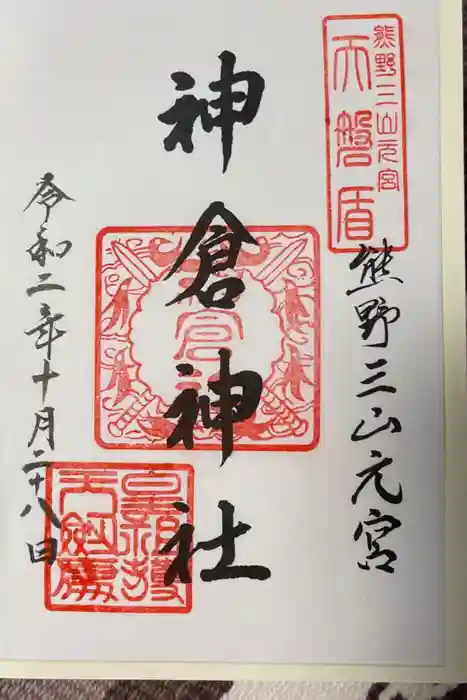 熊野三山元宮
天磐盾
熊野三山元宮
神倉神社
令和二年十月二十八日